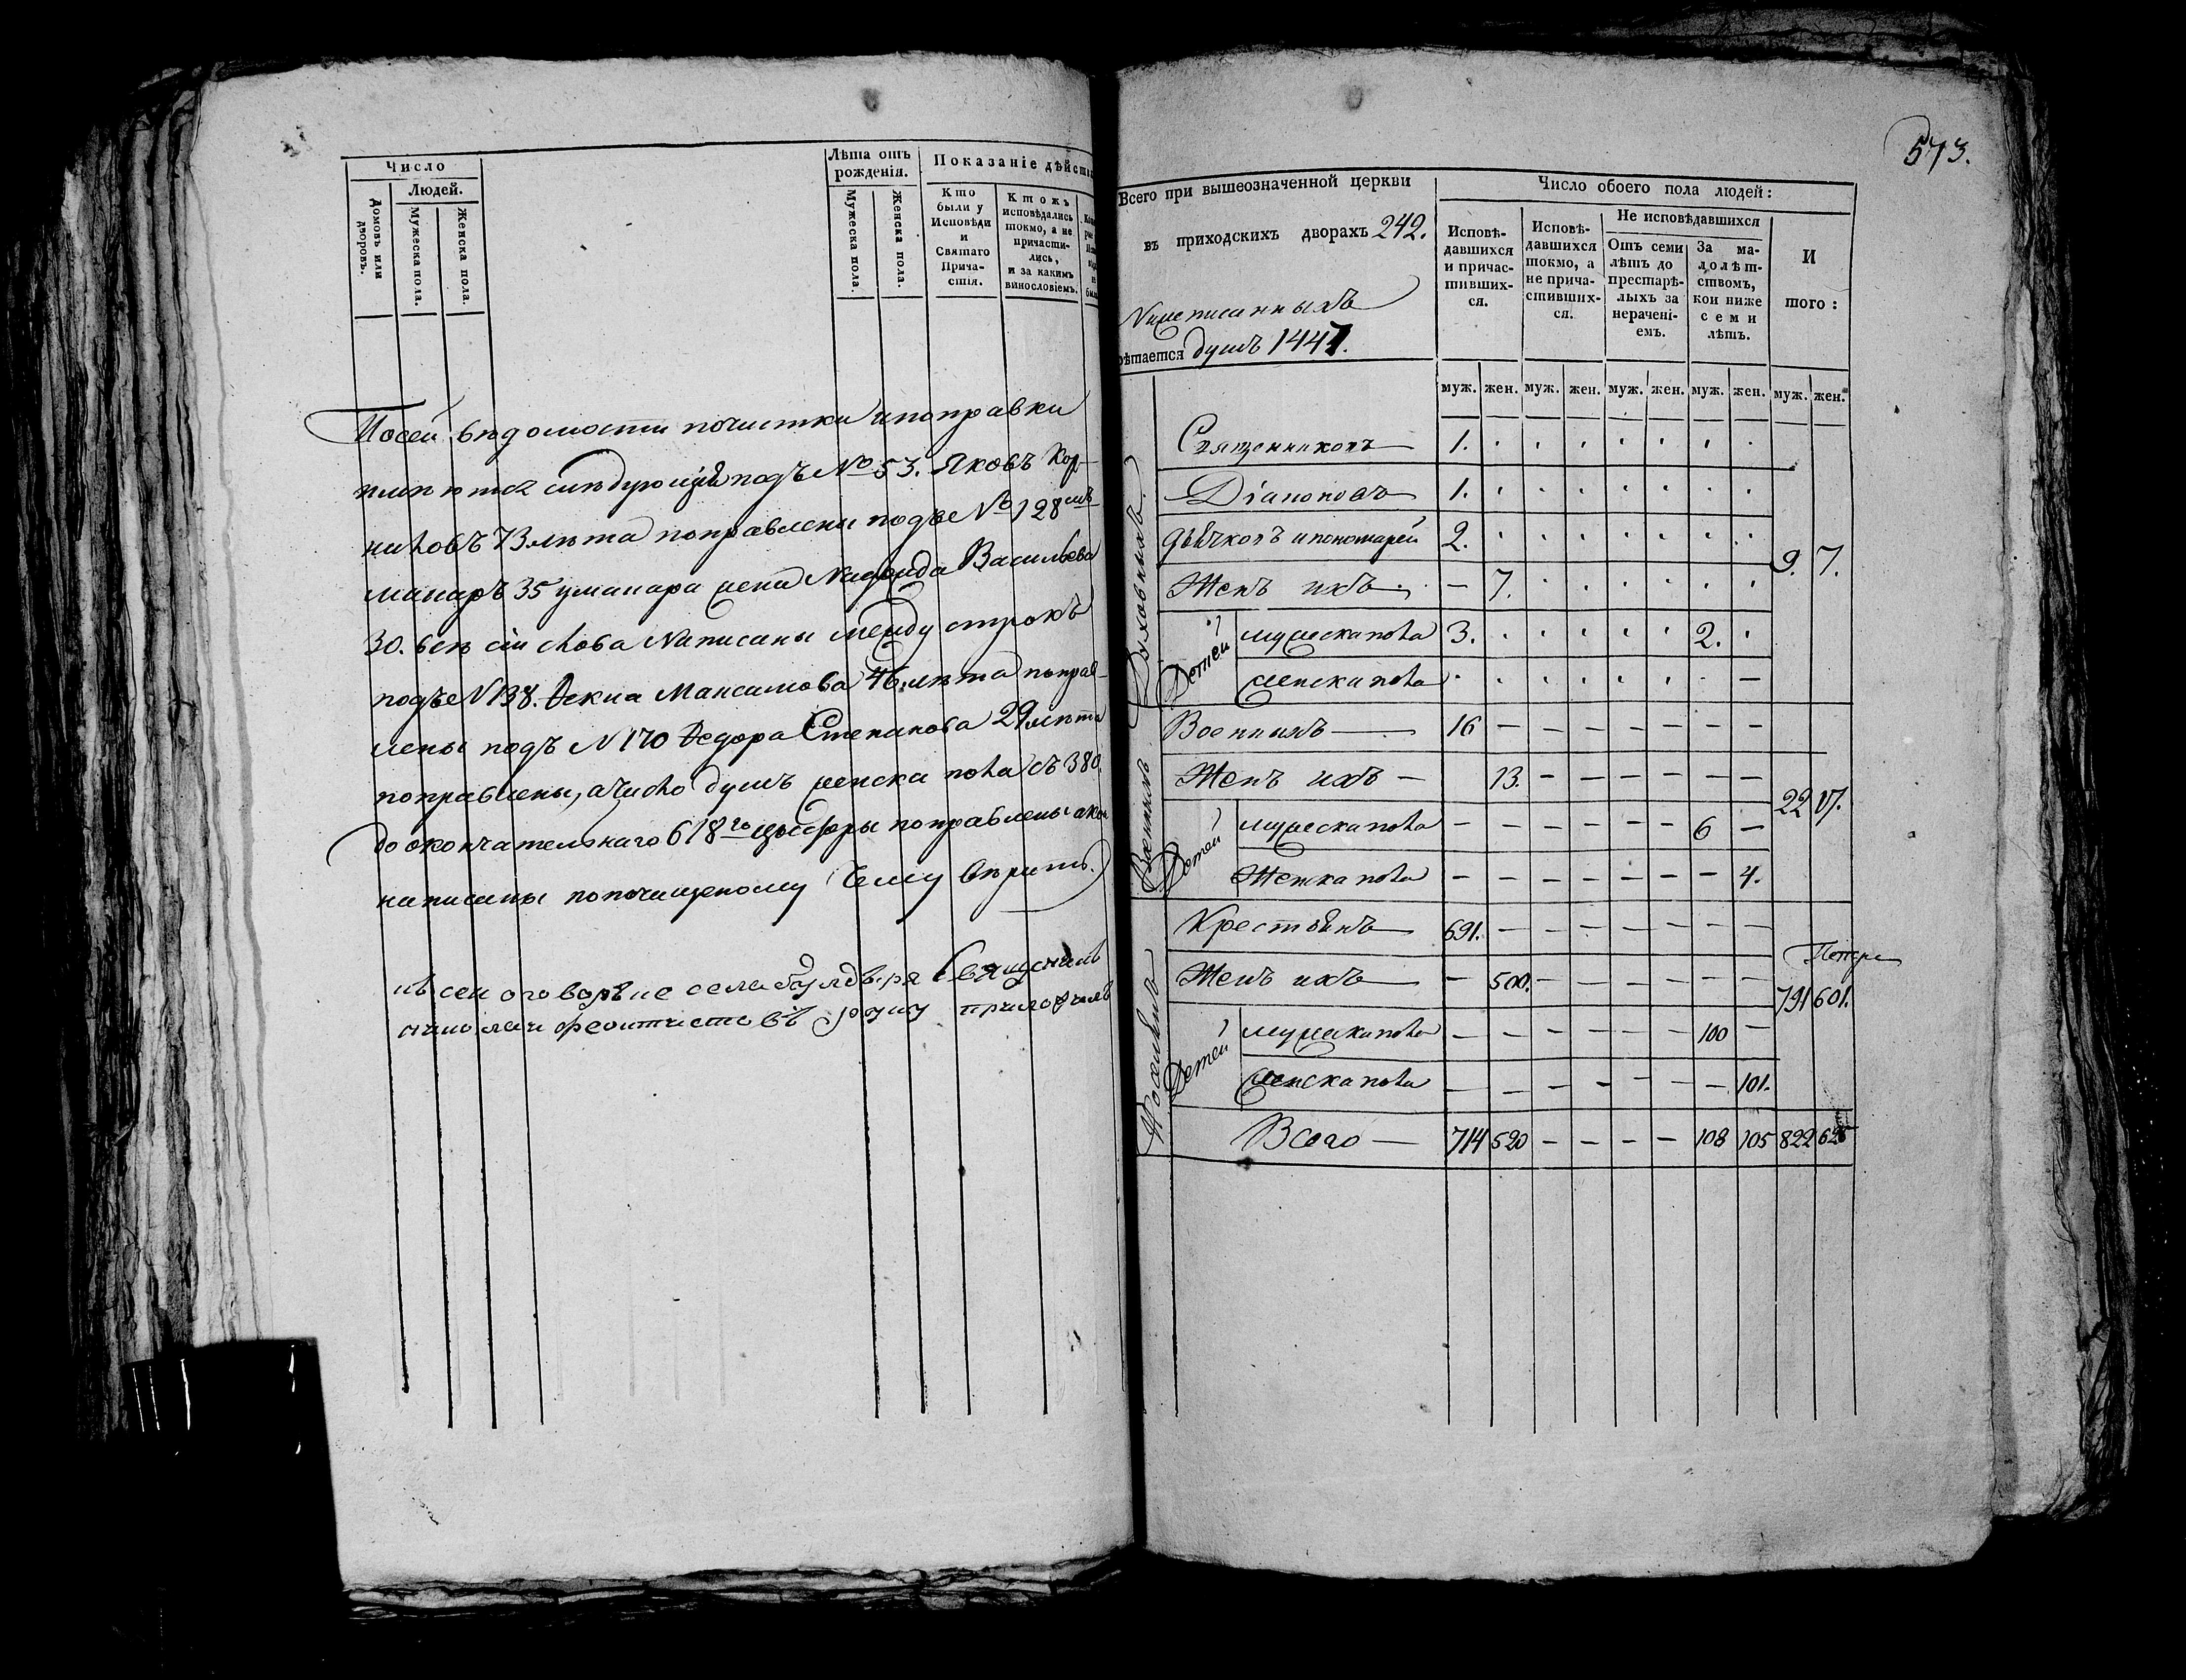 Число
Людей.
Домовъ или дворовъ.
Мужеска пола.
Женска пола.
Лѣта отъ рожденія.
Мужеска пола.
Женска пола.
Показаніе дѣйст
Кто были у Исповѣди и Святаго Прича-стія.
Ктожъ исповѣдались токмо, а не причасти-лись, и за какимъ винословіемъ.
Посей вѣдомости почистки и поправки
имѣютса слѣдующія подъ № 53. Яковъ Кор-
ниловъ 73 лѣта поправлены подъ № 128мъ
макаръ 35 у макара жена Надежда Васильева
30. всѣ сіи слова написаны между строкъ
подъ N 138. Ѳекла Максимова 46. лѣта поправ-
лены подъ N 170 Ѳедора Степанова 29 лѣта
поправлены, а число душъ женска пола съ 380.
до окончательнаго 618го цыфры поправлены
написаны попочищеному Чему вѣрить.
села Священникъ
руку приложилъ
573.
Всего при вышеозначенной церкви
въ приходскихъ дворахъ 242.
написанныхъ
ѣтается душъ 1447.
Число обоего пола людей:
Исповѣ-давшихся и причас-тивших-ся.
Исповѣ-давшихся токмо, а не прича-стивших-ся.
Не исповѣдавшихся
Отъ семи лѣтъ до престарѣ-лыхъ за нерачені-емъ.
За ма-лолѣт-ствомъ, кои ниже семи лѣтъ.
И того:
муж. жен. муж. жен. муж. жен. муж. жен. муж. жен.
Духовныхъ.
Священниковъ 1.
Діаконовъ 1.
Дьячковъ и пономарей 2. 9. 7.
Женъ ихъ — 7.
Детей мужеска пола 3. 2.
женска пола —
Военныхъ
Военныхъ — 16 — — — — — — —
Женъ ихъ — 13. — — — — — — 22 17.
Детей мужеска пола — — — — — — 6 —
Женска пола — — — — — — — 4.
Поселянъ
Крестьянъ — 691. — — — — — — —
Женъ ихъ — — 500. — — — — — — 791 601.
Детей мужеска пола — — — — — — 100 —
женска пола — — — — — — — 101.
Всего — 714 520 — — — — 108 105 822 625